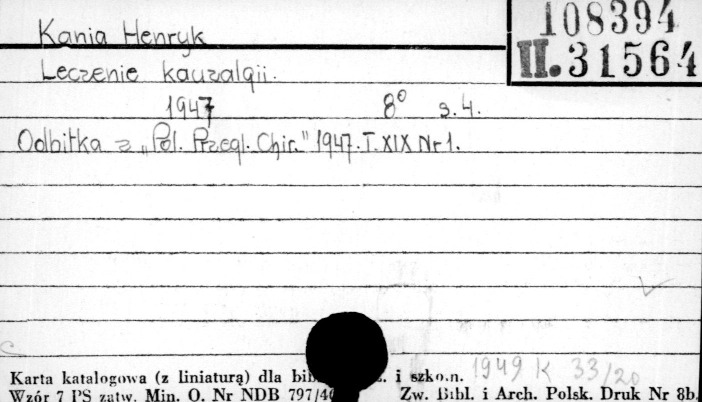 108394
II.31564
Kania Henryk
Leczenie kauzalgii.
1947 8° s.4.
Odbitka z „Pol. Przegl. Chir." 1947. T. XIX Nr 1.
1949 K 33/20
Karta katalogowa (z liniaturą) dla i szkoln.
Wzór 7 PS zatw. Min. O. Nr NDB 797/4 Zw. Bibl. i Arch. Polsk. Druk Nr 8b.